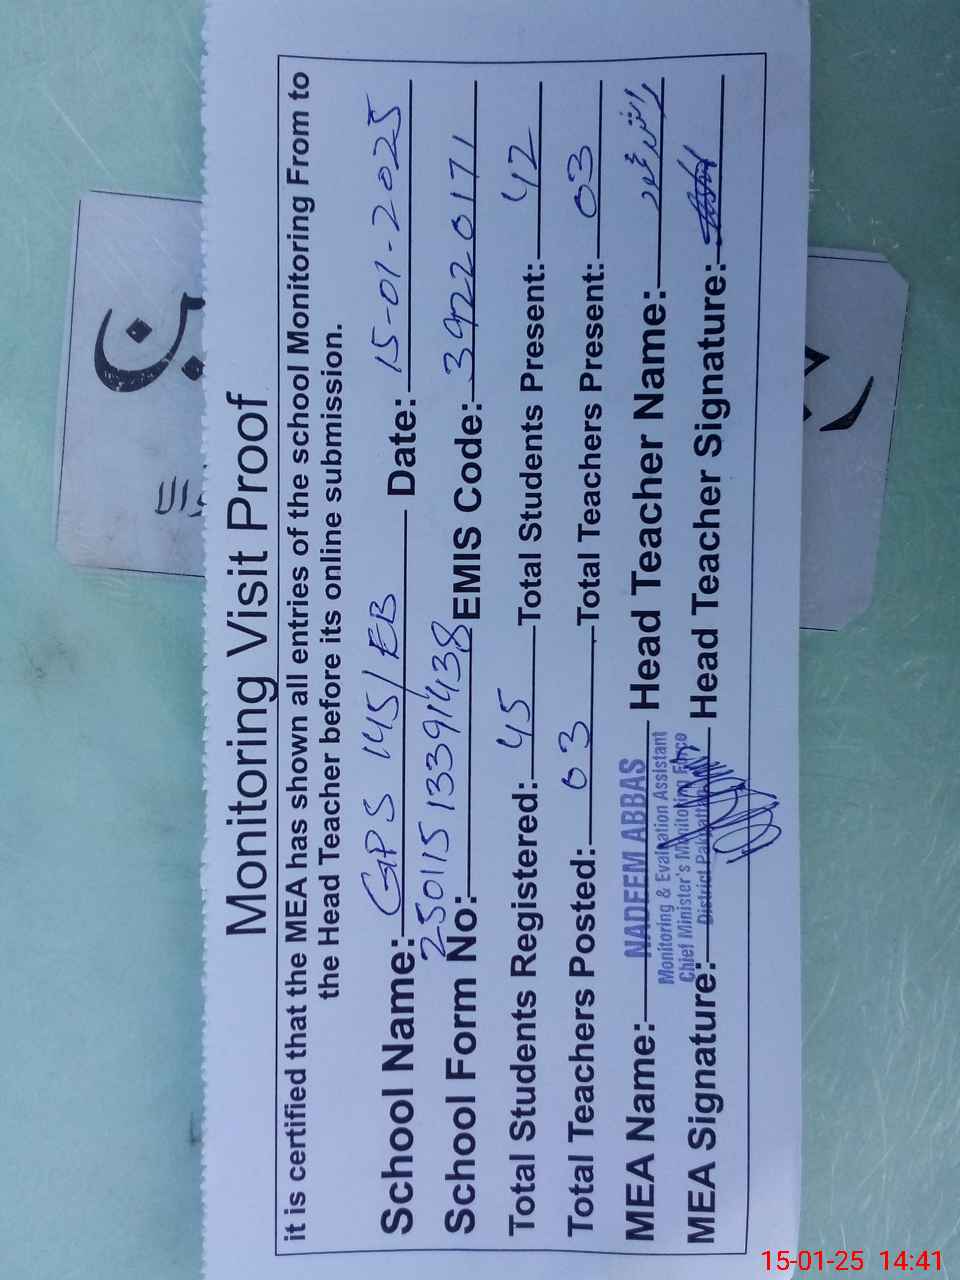 Monitoring Visit Proof
it is certified that the MEA has shown all entries of the school Monitoring From to
the Head Teacher before its online submission.
School Name: GPS 145/EB Date: 15-01-2025
School Form No: 25011513391438 EMIS Code: 39220171
Total Students Registered: 45 Total Students Present: 42
Total Teachers Posted: 03 Total Teachers Present: 03
MEA Name: NADEEM ABBAS Head Teacher Name:
Monitoring & Evaluation Assistant
Chief Minister's Monitoring Force
District Pakpattan
MEA Signature: Head Teacher Signature:
15-01-25 14:41